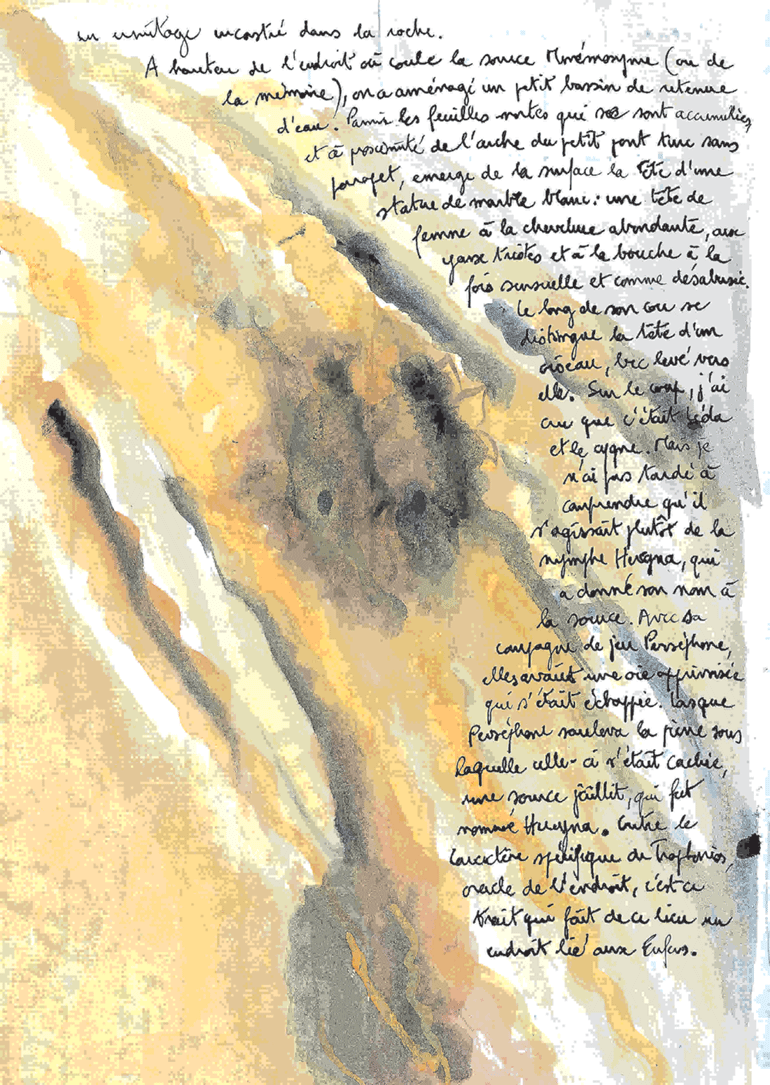 un ermitage encastré dans la roche.
A hauteur de l'endroit où coule la source Mnémosyne (ou de
la mémoire), on a aménagé un petit bassin de retenue
d'eau. Parmi les feuilles mortes qui se sont accumulées,
et à proximité de l'arche du petit pont turc sans
parapet, emerge de la surface la tête d'une
statue de marbre blanc : une tête de
femme à la chevelure abondante, aux
yeux tristes et à la bouche à la
fois sensuelle et comme désabusée.
Le long de son cou se
distingue la tête d'un
oiseau, bec levé vers
elle. Sur le coup, j'ai
cru que c'était Léda
et le cygne. Mais je
n'ai pas tardé à
comprendre qu'il
s'agissait plutôt de la
nymphe Hercyna, qui
a donné son nom à
la source. Avec sa
compagne de jeu Perséphone,
elles avaient une oie apprivoisée
qui s'était échappée. Lorsque
Perséphone souleva la pierre sous
laquelle celle-ci s'était cachée,
une source jaillit, qui fut
nommée Hercyna. Outre le
caractère spécifique du Trophonios,
oracle de l'endroit, c'est ce
trait qui fait de ce lieu un
endroit lié aux Enfers.